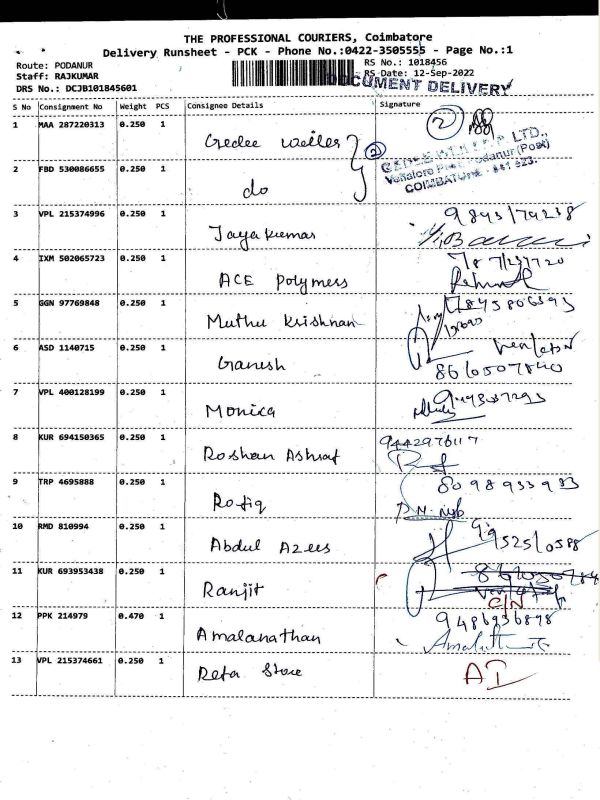 THE PROFESSIONAL COURIERS, Coimbatore
Delivery Runsheet - PCK - Phone No.:0422-3505555 - Page No.:1
Route: PODANUR
RS No.: 1018456
Staff: RAJKUMAR
RS Date: 12-Sep-2022
DRS No.: DCJB101845601
DOCUMENT DELIVERY
S No Consignment No Weight PCS Consignee Details Signature
1 MAA 287220313 0.250 1 Gedee weiler
2
2
2 FBD 530086655 0.250 1 do
3 VPL 215374996 0.250 1 Jayakumar
4 IXM 502065723 0.250 1 ACE Polymers
5 GGN 97769848 0.250 1 Muthu Krishnan
6 ASD 1140715 0.250 1 Ganesh
7 VPL 400128199 0.250 1 Monica
8 KUR 694150365 0.250 1 Roshan Ashraf 9442976117
9 TRP 4695888 0.250 1 Rofiq 8098933983
10 RMD 810994 0.250 1 Abdul Azees
11 KUR 693953438 0.250 1 Ranjit C/N
12 PPK 214979 0.470 1 Amalanathan 9486936898
13 VPL 215374661 0.250 1 Reta Store